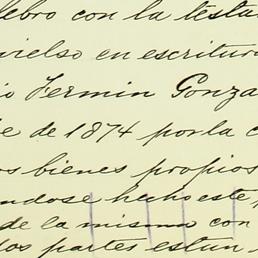 lebro con la testa
vielso en escritura
io Fermin Gonza
e de 1874 por la c
os bienes propios
ndose hecho este p
de la misma con
dos partes estun